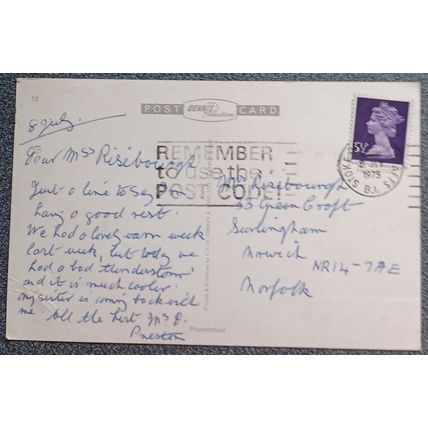 12
POST DENNIS Productions CARD
8 July.
Dear Mrs Riseborough
Just a line to say
hang a good rest.
We had a lovely warm week
last week, but today we
had a bad thunderstorm
and it is much cooler.
my sister is coming back with
me. All the best Mrs D.
Preston
Mrs Riseborough
33 Green Croft
Surlingham
Norwich
NR14-7AE
Norfolk
REMEMBER
to use the
POST CODE!
STOKE
8 JLY
1975
STAFFS
5½P
Photocolour